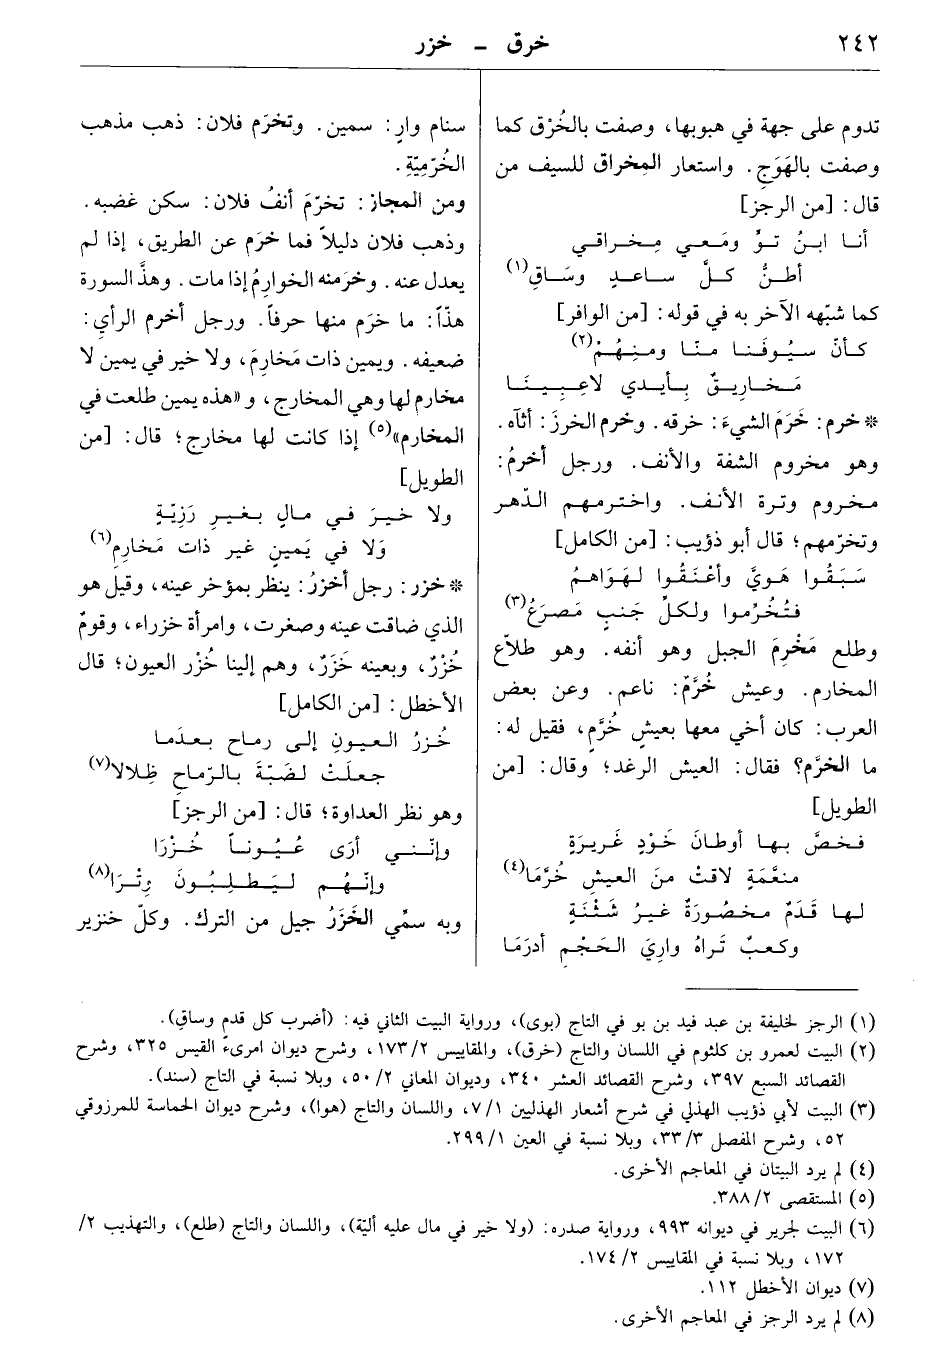 ٢٤٢
خرق - خزر
تدوم على جهة في هبوبها، وصفت بالخُرْق كما
وصفت بالهَوَج. واستعار المِخراق للسيف من
قال: [من الرجز]
أنـا ابـنُ تـوٍّ ومَـعـي مِـخـراقـي
أطـنُّ كـلَّ سـاعـدٍ وسَـاقِ(١)
كما شبّهه الآخر به في قوله: [من الوافر]
كـأنّ سـيُـوفَـنـا مـنّـا ومـنـهُـمْ(٢)
مَـخـاريـقٌ بـأيـدي لاعـبـيـنَـا
* خرم: خَرَمَ الشيءَ: خرقه. وخرم الخرزَ: أثآه.
وهو مخروم الشفة والأنف. ورجل أخرمُ:
مخروم وترة الأنف. واخترمهم الدّهر
وتخرّمهم؛ قال أبو ذؤيب: [من الكامل]
سَـبَـقُـوا هَـويَّ وأعْـنَـقُـوا لـهَـوَاهـمُ
فـتُـخُـرِّمـوا ولـكـلِّ جَـنـبٍ مَـصـرَعُ(٣)
وطلع مَخْرِمَ الجبل وهو أنفه. وهو طلاّع
المخارم. وعيش خُرَّمٌ: ناعم. وعن بعض
العرب: كان أخي معها بعيشٍ خُرَّمٍ، فقيل له:
ما الخرَّم؟ فقال: العيش الرغد؛ وقال: [من
الطويل]
فـخـصَّ بـهـا أوطـانَ خَـوْدٍ غَـريـرَةٍ
منعَّمَةٍ لاقـتْ مـنَ الـعيـشِ خُرَّمَا(٤)
لـهـا قَـدَمٌ مـخـصُـورَةٌ غـيـرُ شَـثْـنَـةٍ
وكـعـبٌ تَـراهُ واريَ الـحَـجْـمِ أدرَمَـا
سنام وارٍ: سمين. وتخرّم فلان: ذهب مذهب
الخُرّميّةِ.
ومن المجاز: تخرّمَ أنفُ فلان: سكن غضبه.
وذهب فلان دليلاً فما خرَم عن الطريق، إذا لم
يعدل عنه. وخرَمته الخوارمُ إذا مات. وهذَّ السورة
هذّاً: ما خرَم منها حرفاً. ورجل أخرم الرأي:
ضعيفه. ويمين ذات مَخارِمَ، ولا خير في يمين لا
مخارم لها وهي المخارج، و «هذه يمين طلعت في
المخارم»(٥) إذا كانت لها مخارج؛ قال: [من
الطويل]
ولا خـيـرَ فـي مـالٍ بـغـيـرِ رَزِيّـةٍ
وَلا في يَمينٍ غير ذات مَخارِمِ(٦)
* خزر: رجل أخزرُ: ينظر بمؤخر عينه، وقيل هو
الذي ضاقت عينه وصغرت، وامرأة خزراء، وقومٌ
خُزْرٌ، وبعينه خَزَرٌ، وهم إلينا خُزْر العيون؛ قال
الأخطل: [من الكامل]
خُـزرُ الـعـيـونِ إلـى رمـاحٍ بـعـدَمـا
جـعلَـتْ لضَبّـةَ بـالـرّماحِ ظِـلالا(٧)
وهو نظر العداوة؛ قال: [من الرجز]
وإنّـنـي أرَى عُـيُـونـاً خُـزْرَا
وإنّـهُـم لـيَـطـلِـبُـونَ وِتْـرَا(٨)
وبه سمِّي الخَزَرُ جيل من الترك. وكلّ خنزير
(١) الرجز لخليفة بن عبد فيد بن بو في التاج (بوى)، ورواية البيت الثاني فيه: (أضرب كل قدم وساق).
(٢) البيت لعمرو بن كلثوم في اللسان والتاج (خرق)، والمقاييس ٢/ ١٧٣، وشرح ديوان امرىء القيس ٣٢٥، وشرح
القصائد السبع ٣٩٧، وشرح القصائد العشر ٣٤٠، وديوان المعاني ٢/ ٥٠، وبلا نسبة في التاج (سند).
(٣) البيت لأبي ذؤيب الهذلي في شرح أشعار الهذليين ١/ ٧، واللسان والتاج (هوا)، وشرح ديوان الحماسة للمرزوقي
٥٢، وشرح المفصل ٣/ ٣٣، وبلا نسبة في العين ١/ ٢٩٩.
(٤) لم يرد البيتان في المعاجم الأخرى.
(٥) المستقصى ٢/ ٣٨٨.
(٦) البيت لجرير في ديوانه ٩٩٣، ورواية صدره: (ولا خير في مال عليه أليّة)، واللسان والتاج (طلع)، والتهذيب ٢/
١٧٢، وبلا نسبة في المقاييس ٢/ ١٧٤.
(٧) ديوان الأخطل ١١٢.
(٨) لم يرد الرجز في المعاجم الأخرى.